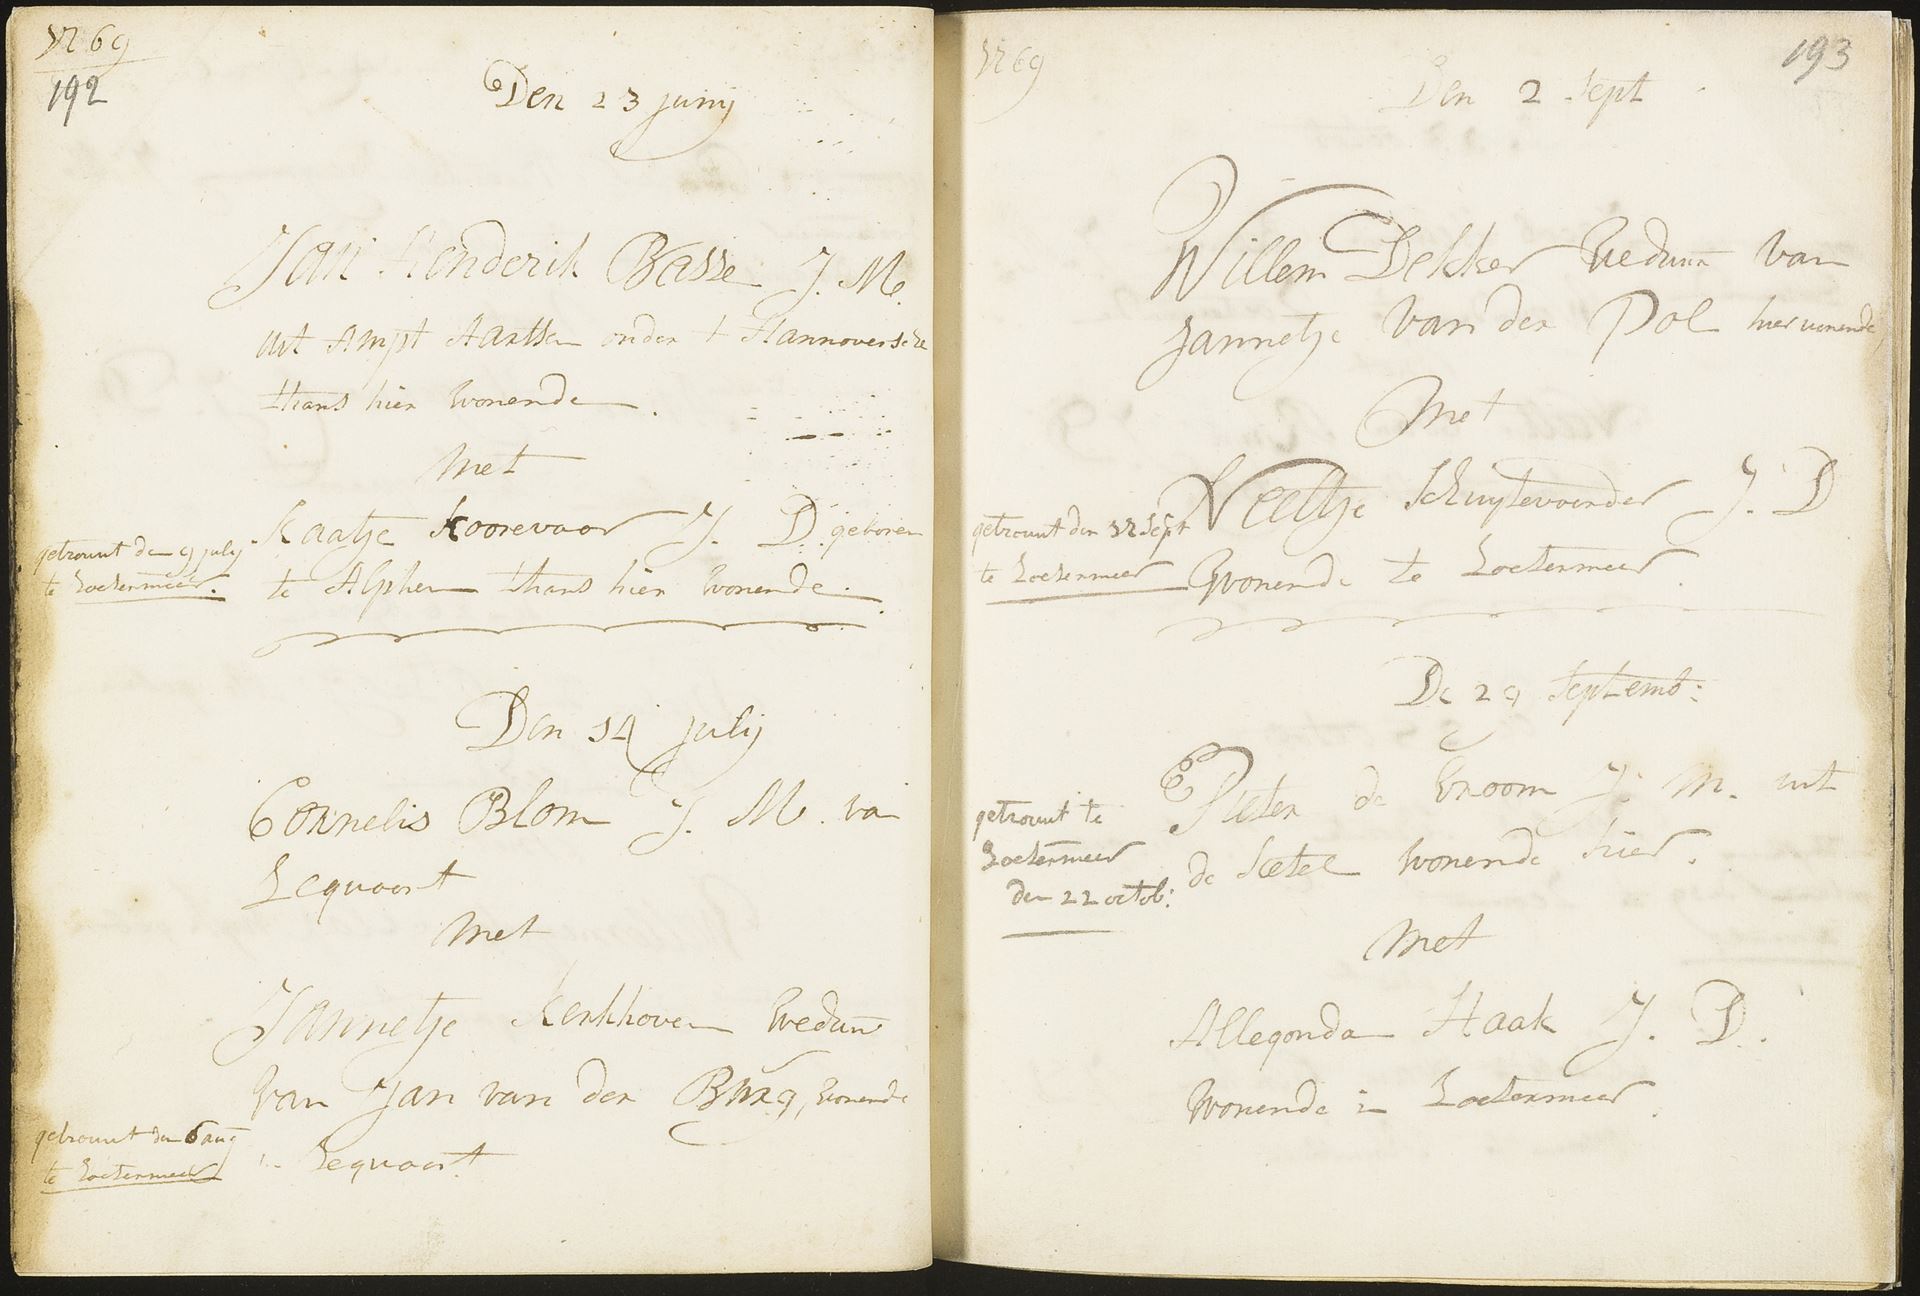 1769
192
Den 23 junij
Jan Henderik Basse J. M.
uit Ampt Aartsen onder t Hannoversche
thans hier wonende.
met
Kaatje Koorevaar J. D. geboren
te Alphen thans hier wonende.
getrouwt den 9 july
te Zoetermeer.
Den 14 julij
Cornelis Blom J. M. van
Zegwaart
met
Jannetje Kerkhoven Weduwe
van Jan van der Burg, wonende
in Zegwaart
getrouwt den 6 aug
te Zoetermeer
1769
193
Den 2 Sept
Willem Dekker Weduwn van
Jannetje van der Pol hier wonende,
met
Neeltje Schuytevoerder J. D
wonende te Zoetermeer.
getrouwt den 17 Sept
te Zoetermeer
De 29 Septemb:
Pieter de Vroom J. M. uit
de Ketel wonende hier.
met
Allegonda Haak J. D.
wonende in Zoetermeer.
getrouwt te
Zoetermeer
den 22 octob: